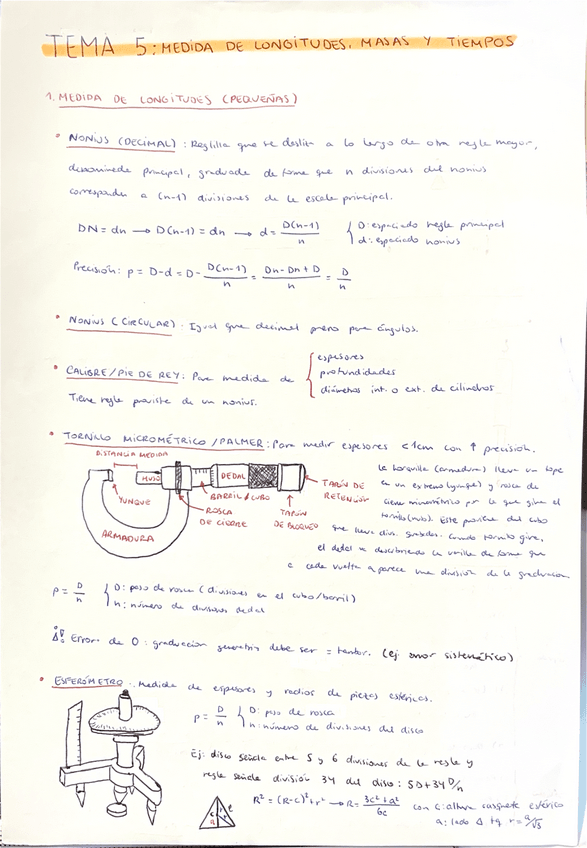 TEMA 5: MEDIDA DE LONGITUDES, MASAS Y TIEMPOS
1. MEDIDA DE LONGITUDES (PEQUEÑAS)
• NONIUS (DECIMAL): Reglilla que se desliza a lo largo de otra regla mayor,
denominada principal, graduada de forma que n divisiones del nonius
corresponden a (n-1) divisiones de la escala principal.
DN = dn → D(n-1) = dn → d = D(n-1)/n { D: espaciado regla principal
d: espaciado nonius
Precisión: p = D-d = D- D(n-1)/n = Dn-Dn+D/n = D/n
• NONIUS (CIRCULAR): Igual que decimal pero para ángulos.
• CALIBRE/PIE DE REY: Para medida de { espesores
profundidades
diámetros int. o ext. de cilindros
Tiene regla provista de un nonius.
• TORNILLO MICROMÉTRICO/PALMER: Para medir espesores <1cm con ↑ precisión.
DISTANCIA MEDIDA
HUSO
DEDAL
YUNQUE
BARRIL/CUBO
TAPÓN DE RETENCIÓN
ROSCA DE CIERRE
TAPÓN DE BLOQUEO
ARMADURA
La horquilla (armadura) lleva un tope
en un extremo (yunque) y rosca de
por lo que gira el
tornillo (huso). Este del cubo
que lleva div. grabadas. Cuando tornillo gira,
el dedal va descubriendo la varilla de forma que
a cada vuelta aparece una división de la graduación.
p = D/n { D: paso de rosca (divisiones en el cubo/barril)
n: número de divisiones dedal
Error de 0: graduación debe ser = tambor. (ej. error sistemático)
• ESFERÓMETRO: Medida de espesores y radios de piezas esféricas.
p = D/n { D: paso de rosca
n: número de divisiones del disco
Ej: disco señala entre 5 y 6 divisiones de la regla y
regla señala división 34 del disco: 5D+34 D/n
R² = (R-c)² + r² → R = 3c²+a²/6c con c: altura casquete esférico
a: lado Δ tq r = a/√3